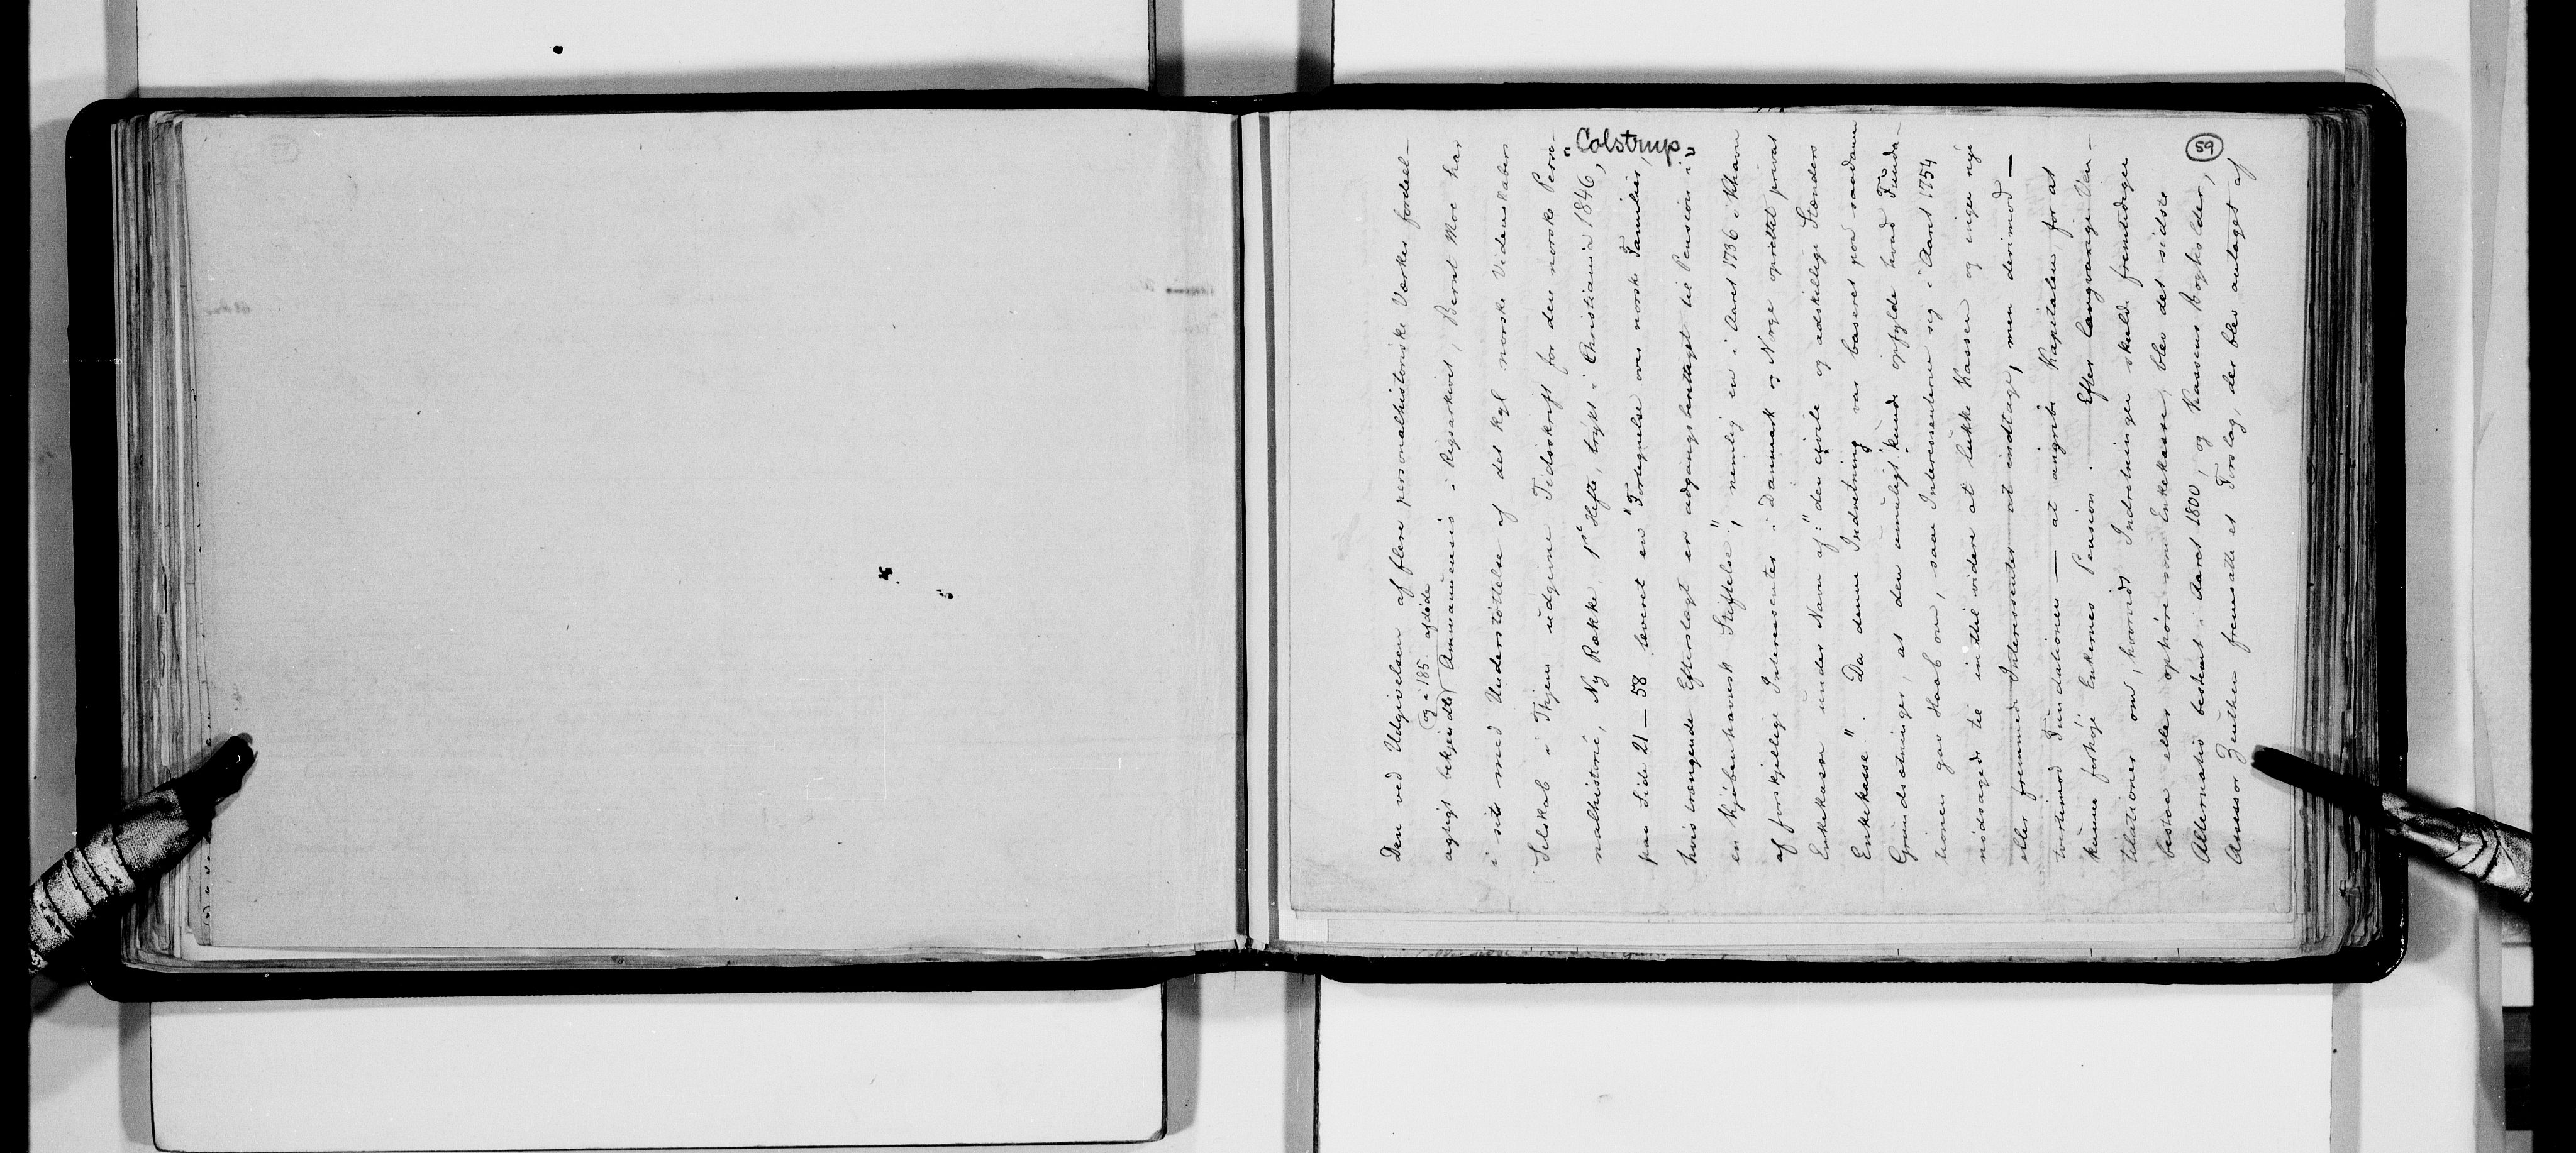 59
"Colstrup"
Den ved Udgivelsen af flere personalhistoriske Værker fordeel-
og i 185 afdøde
agtigt bekjendte Ammanuensis i Rigsarkivet, Bernt Moe har
i sit med Understøttelse af det kgl norske Videnskabers
Selskab i Thjem udgivne Tidsskrift for den norske Perso-
nalhistorie, Ny Række, 1e Hefte, trykt i Christiania 1846,
paa Side 21-58 leveret en "Fortegnelse over norske Familier,
hvis trængende Efterslægt er adgangsberettiget til Pension i
en kjøbenhavnsk Stiftelse", nemlig en i Aaret 1736 i Khavn
af forskjellige Interessenter i Danmark og Norge oprettet privat
Enkekasse under Navn af: "den civile og adskillige Stænders
Enkekasse". Da denne Indretning var baseret paa saadanne
Grundsætninger, at den umuligt kunde opfylde hvad Funda-
tionen gav Haab om, saa Interessenterne sig i Aaret 1754
nødsagede til indtil videre at lukke Kassen og ingen nye
eller fremmede Interessenter at indtage, men derimod -
tvertimod Fundationen - at angribe Kapitalen for at
kunne forhøje Enkernes Pension. Efter langvarige Ven-
tilationer om, hvorvidt Indretningen skulde fremtidigen
bestaa eller ophøre som Enkekasse, blev det sidste
Alternativ bestemt i Aaret 1800, og Kassens Bogholder,
Assessor Zeuthen fremsatte et Forslag, der blev antaget af